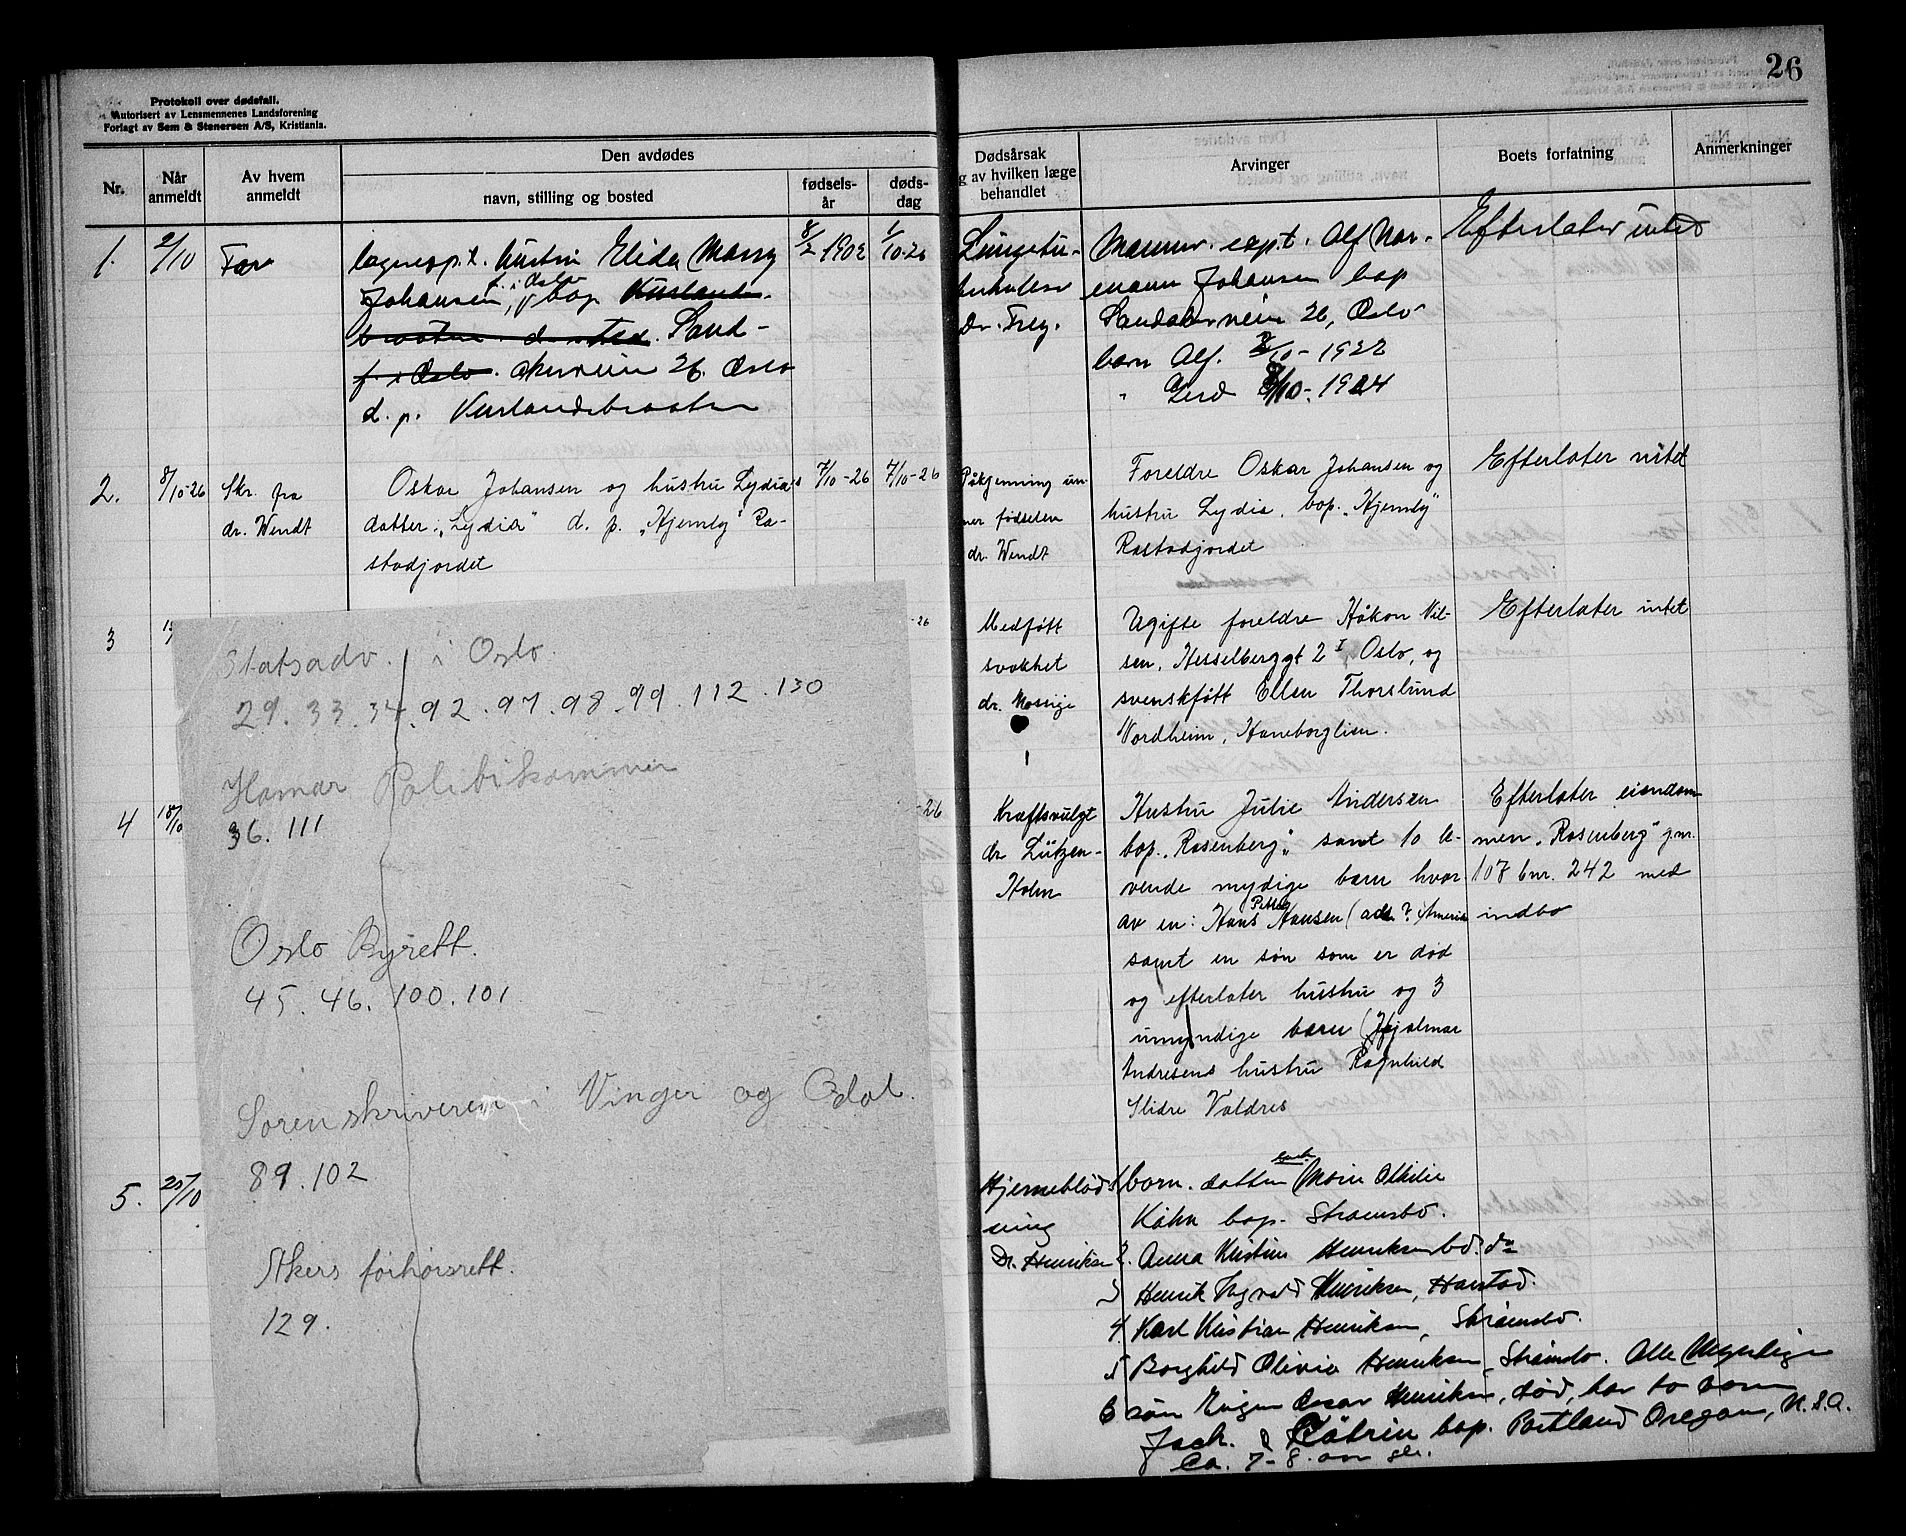 26
Protokoll over dødsfall.
Autorisert av Lensmennenes Landsforening
Forlagt av Sem & Stenersen A/S, Kristiania.
Nr.
Når anmeldt
Av hvem anmeldt
Den avdødes
navn, stilling og bosted
fødsels-år
døds-dag
Dødsårsak
g av hvilken læge
behandlet
Arvinger
Boets forfatning
Anmerkninger
1. 2/10 Far
hustru Elida Massy
Johansen, f. i Oslo bop
Sand-
f. i Oslo. akerveien 26. Oslo
d. p. Kurlandsbraaten
8/2 1902 1/10-26
Lungetu-
berkulose
Dr. Frey.
Mannen. expt. Alf Nor-
mann Johansen bop
Sandakerveien 26, Oslo
barn Alf. 2/10-1922
" Gerd 8/10-1924
Efterlater intet
2. 8/10-26 Skr. fra
dr. Wendt
Oskar Johansen og hustru Lydia's
datter: "Lydia" d. p. "Hjemly" Ra-
stadjordet
7/10-26 7/10-26
un-
der fødselen
dr. Wendt
Foreldre Oskar Johansen og
hustru Lydia, bop. "Hjemly"
Rastadjordet
Efterlater intet
3
-26
Medføtt
svakhet
dr. Mossige
Ugifte foreldre Håkon Nil-
sen, Hesselberggt 2 I, Oslo, og
svenskføtt Ellen Thorslund
Nordheim, Haneborglien.
Efterlater intet
4 18/10
-26
Kræftsvulst
dr. Lützen-
Holm
Hustru Julie Andersen
bop. "Rosenberg", samt 10 le-
vende myndige barn hvor
av en: Hans Petter Hansen (adr. ? Amerika
samt en søn som er død
og efterlater hustru og 3
umyndige barn (Hjalmar
Andresens hustru Ragnhild
Slidre Valdres
Efterlater eiendom
men "Rosenberg" gnr.
107 bnr. 242 med
indbo
Statsadv. i Oslo.
29. 33. 34. 92. 97. 98. 99. 112. 130
Hamar Politikammer
36. 111
Oslo Byrett.
45. 46. 100. 101
Sorenskriveren i Vinger og Odal.
89. 102
Akers forhørsrett.
129.
5. 25/10
Hjerneblød-
ning
Dr. Henriksen
1 barn. datter Marie Othilie
Køhn bop. Strømsbo.
2. Anna Kristine Henriksen bd. do
3 Henrik Ingvald Henriksen, Harstad.
4. Karl Kristian Henriksen, Strømsbo.
5 Borghild Olivia Henriksen, Strømsbo. Alle Myndige
6 søn Eugen Oscar Henriksen, død, har to barn
Jack. & Catrin bop. Portland Oregon, U.S.A.
Ca. 7-8. aar gl.